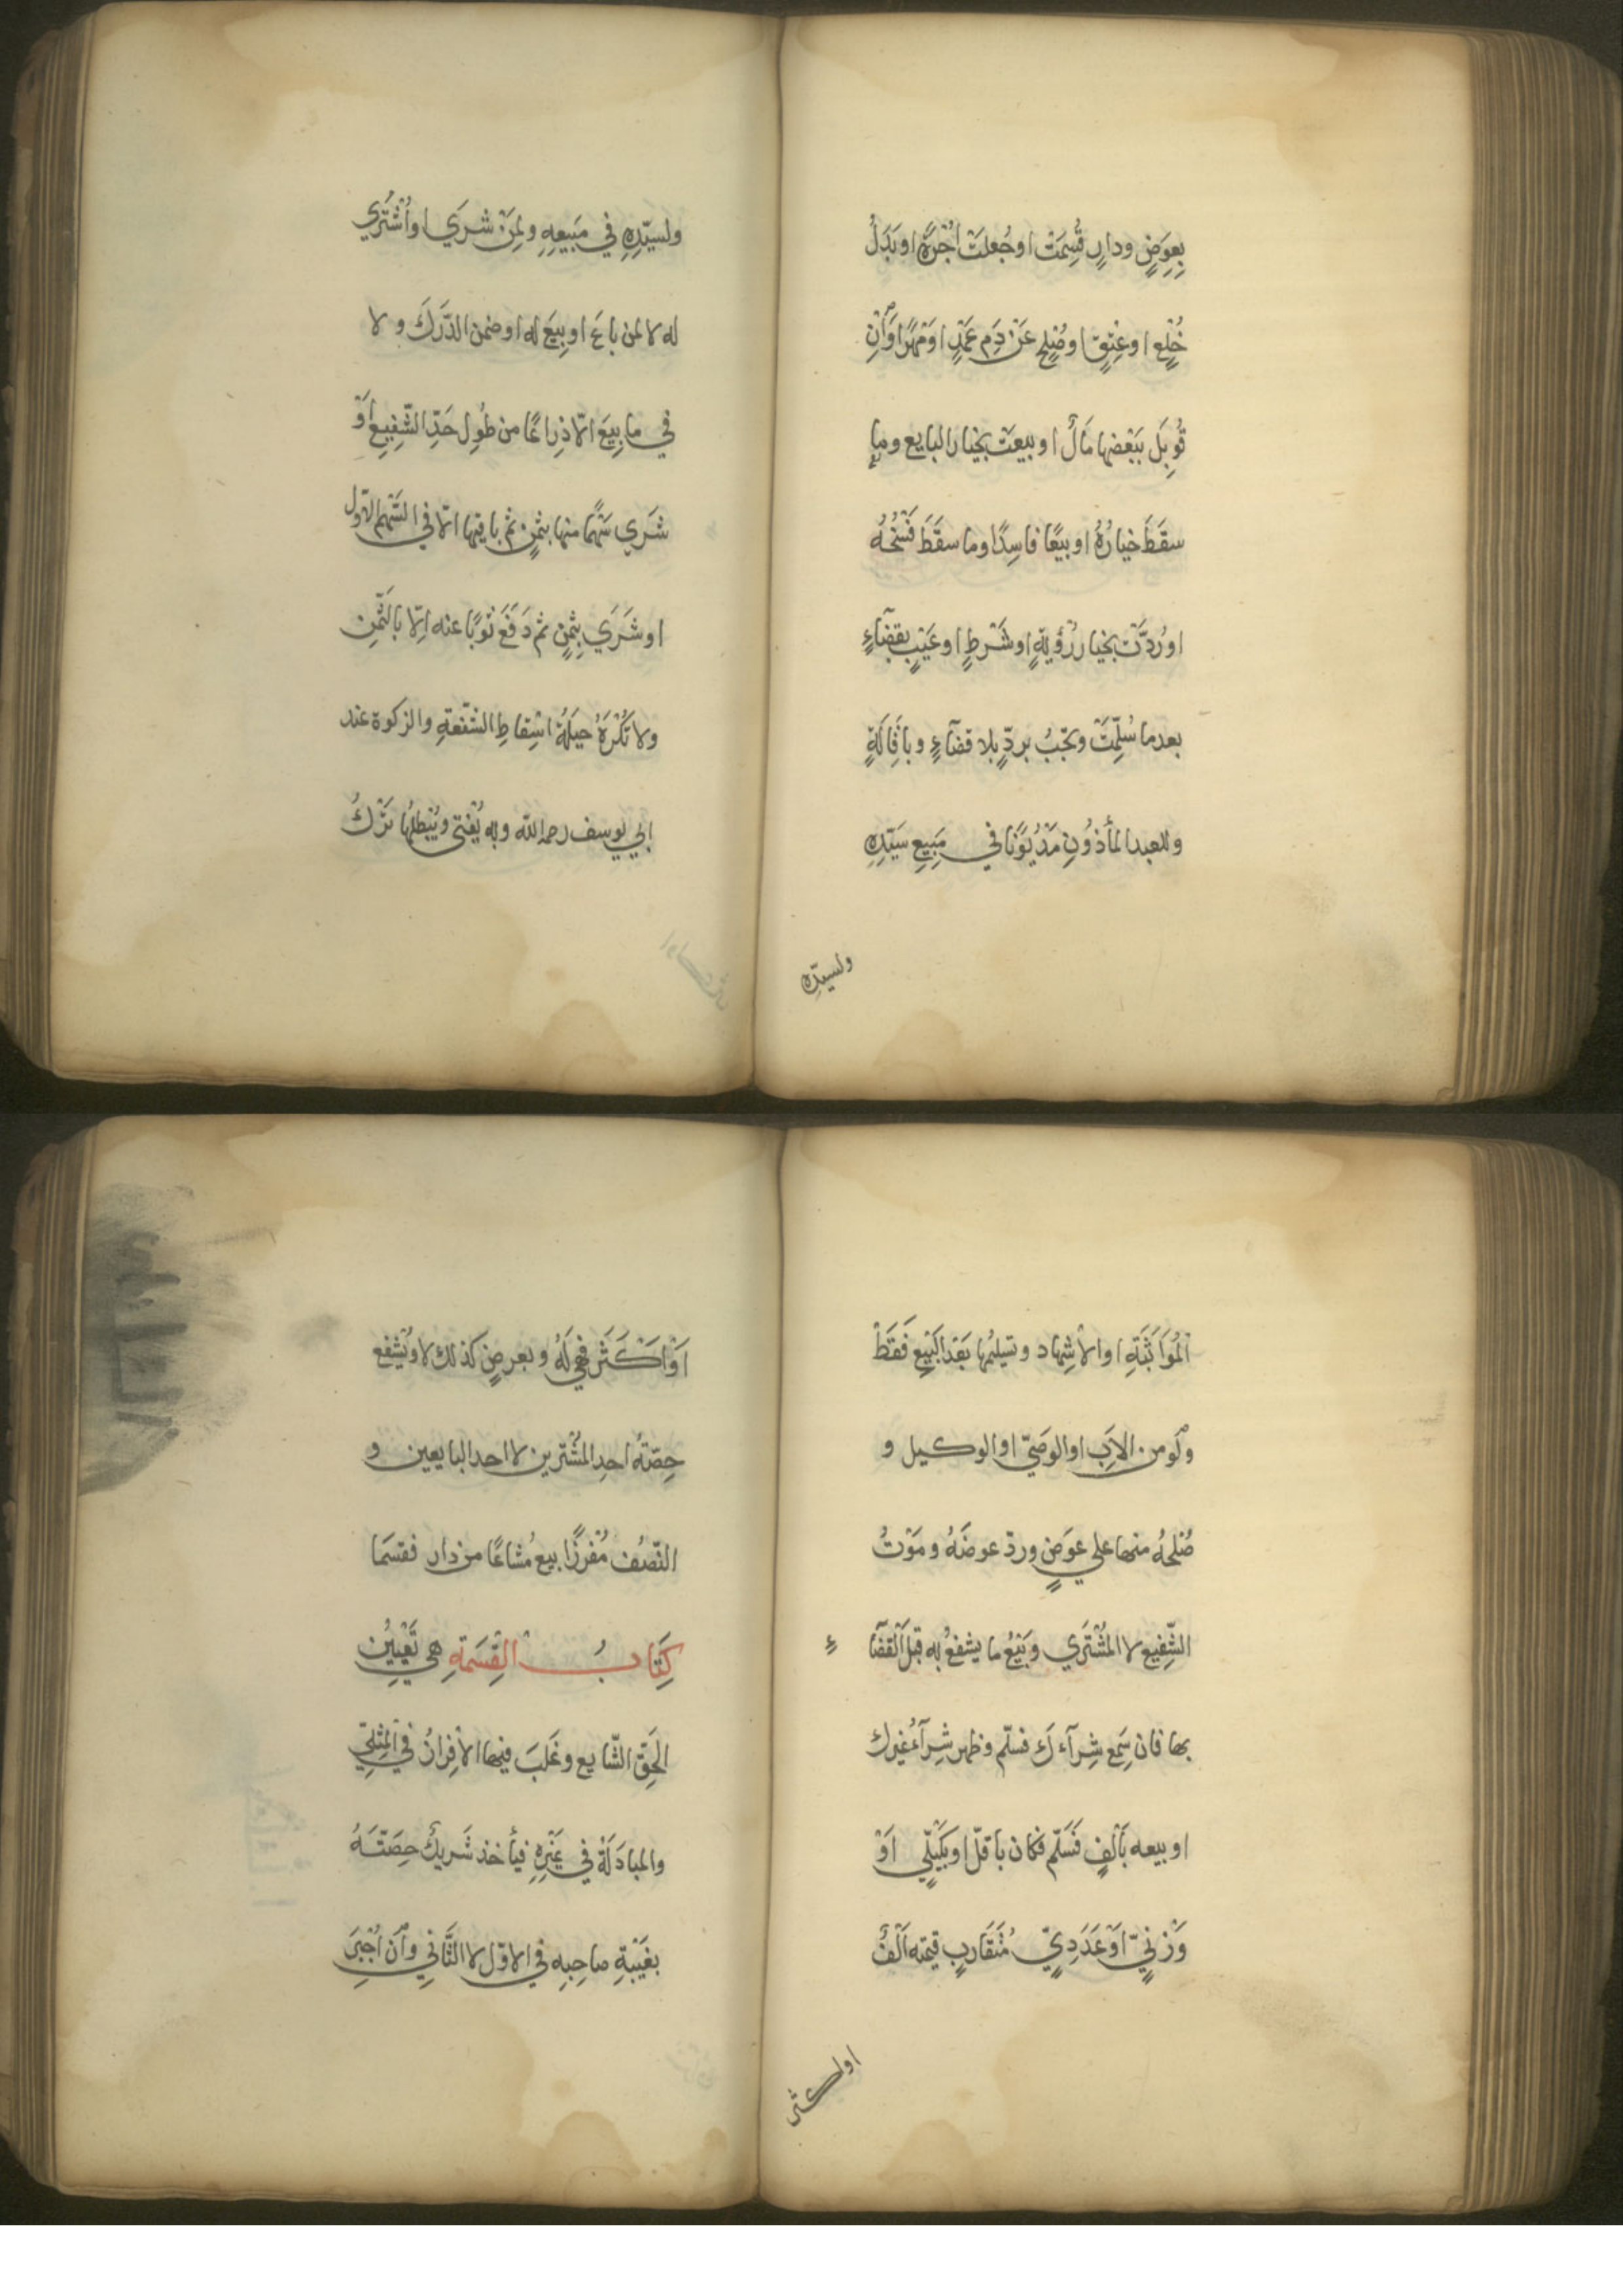 بِعِوَضٍ ودارٍ قُسِمَت اوجُعلَت اُجْرَةً اوبَدَلَ
خُلْعٍ اوعِتقٍ اوصُلحٍ عَنْ دَمِ عَمْدٍ اوَمَهْرًا وَاِنْ
قُوبِلَ بِبَعْضِها مَالٌ اوبيعَت بخيار البايع وما
سقَطَ خيارُهُ اوبيعًا فاسِدًا وما سقَطَ فَسْخُهُ
اورُدَّتْ بخيار رُؤيةٍ اوشَرطٍ اوعَيْبٍ بقضآءٍ
بعدما سُلِّمَتْ وتجبُ بردٍّ بلا قضآءٍ وباقَالَةٍ
وللعبد المأذُونِ مَدْيُوَنًا في مَبِيع سَيّدِهِ
ولسيدِه
ولسيّدِهِ في مَبيعِهِ ولمِنَ شرَي اواُشتُرِي
له لا لمن باعَ اوبِيَع له اوضمن الدّرَكَ ولا
في ما بِيعَ الّا ذِراعًا من طُولِ حَدِّ الشّفِيعِ اَوْ
شَرَي سَهْمًا منها بثمنٍ ثم باقيها الّا في السَّهم الاول
اوشَرَي بثمنٍ ثم دَفَعَ ثوبًا عنه الِّا بالثَّمنِ
ولا تُكْرَهُ حيلَةُ اسْقاطِ الشّفعةِ والزكوة عند
ابي يوسف رحمه الله وبه يُفْتى ويُبْطِلُها تَرْكُ
المُوَاثَبَةِ اوالاشِهاد وتسليمُها بَعْدَ البَيعِ فَقَطْ
ولَو من الاَبِ اوالوصَيّ اوالوكيل و
صُلحُهُ منها علي عوَضٍ وردّ عوضَهُ ومَوْتُ
الشّفِيع لا المُشْتَري وبَيْعُ ما يشفعُ به قَبلَ القضآءِ
بها فان سَمِعَ شِرآءكَ فسلّم وظهر شِرآءُ غيرك
اوبيعه بأَلْفٍ فَسَلّم فكان بأقلّ اوبكَيْلّيٍ اَوْ
وَزْنيٍّ اَوْعَدَدِيٍّ مُتَقَارِبٍ قيمته اَلْفٌ
اواكثر
اَوْاَكْثَرَ فهي لَهُ وبعرضٍ كذلك لا ويُشْفع
حِصّتُه احدِ المشْتَرين لا احد البايعين و
النّصْف مُفْرزًا بيع مُشاعًا من دارٍ فقسَمَا
كِتَابُ القِسْمَةِ هي تَعْيِيُن
الحَقّ الشّايع وغلبَ فيها الافِرازُ في المِثْلِيّ
والمبادَلَةُ في غَيْرِهِ فيأخذ شَريكٌ حِصَّتَهُ
بغَيْبَةِ صاحِبهِ في الاوّل لا الثَّاني وان اُجْبَرِ